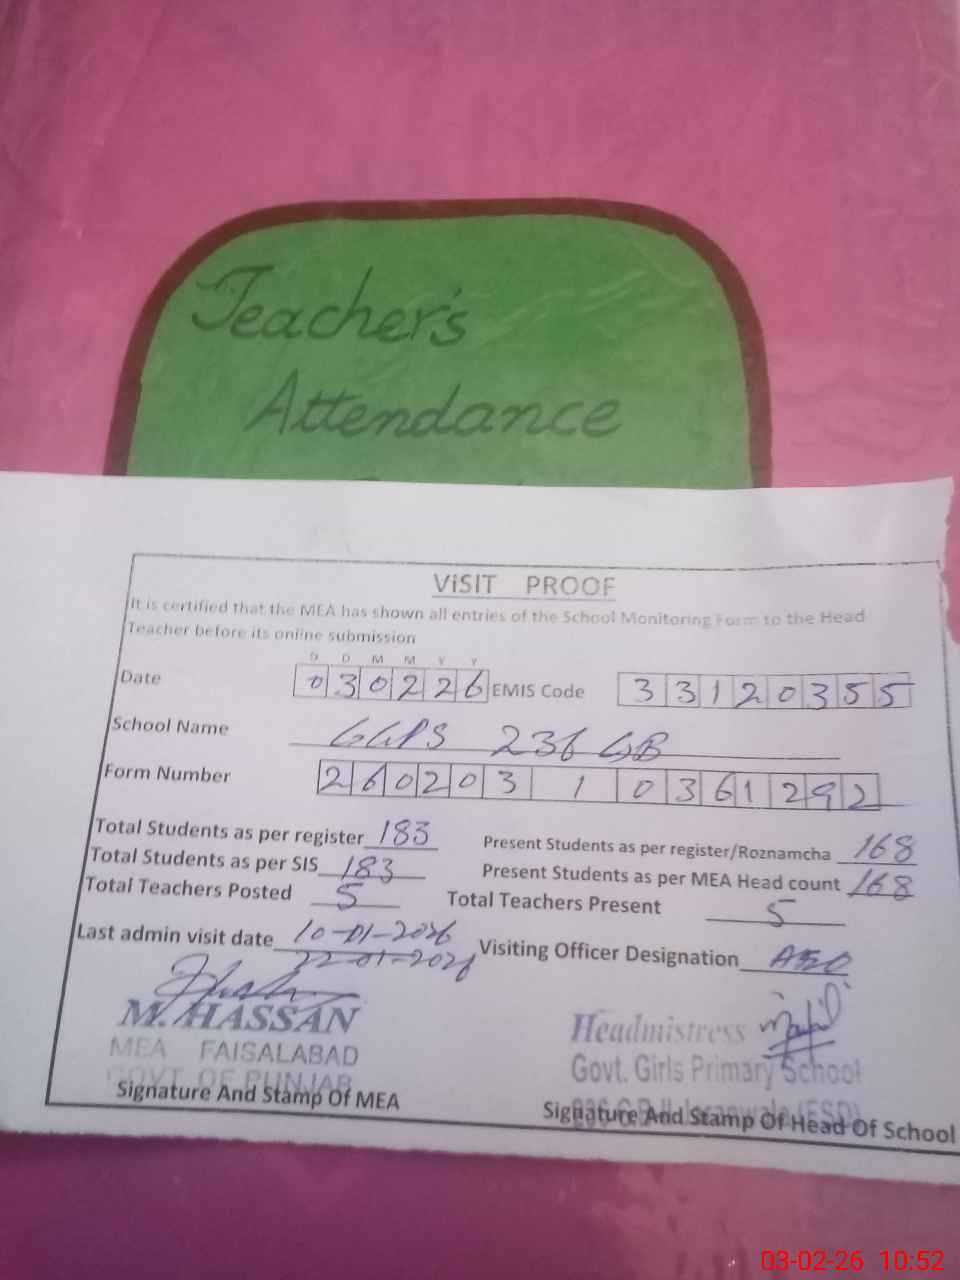 Teacher's
Attendance
ViSIT PROOF
It is certified that the MEA has shown all entries of the School Monitoring Form to the Head
Teacher before its online submission
D D M M Y Y
Date 030226 EMIS Code 33120355
School Name GGPS 236 GB
Form Number 260203 1 0361292
Total Students as per register 183 Present Students as per register/Roznamcha 168
Total Students as per SIS 183 Present Students as per MEA Head count 168
Total Teachers Posted 5 Total Teachers Present 5
Last admin visit date 10-01-2026 Visiting Officer Designation AEO
22-01-2026
M. HASSAN
MEA FAISALABAD
GOVT. OF PUNJAB
Signature And Stamp Of MEA
Headmistress
Govt. Girls Primary School
236 G.B
Signature And Stamp Of Head Of School
03-02-26 10:52